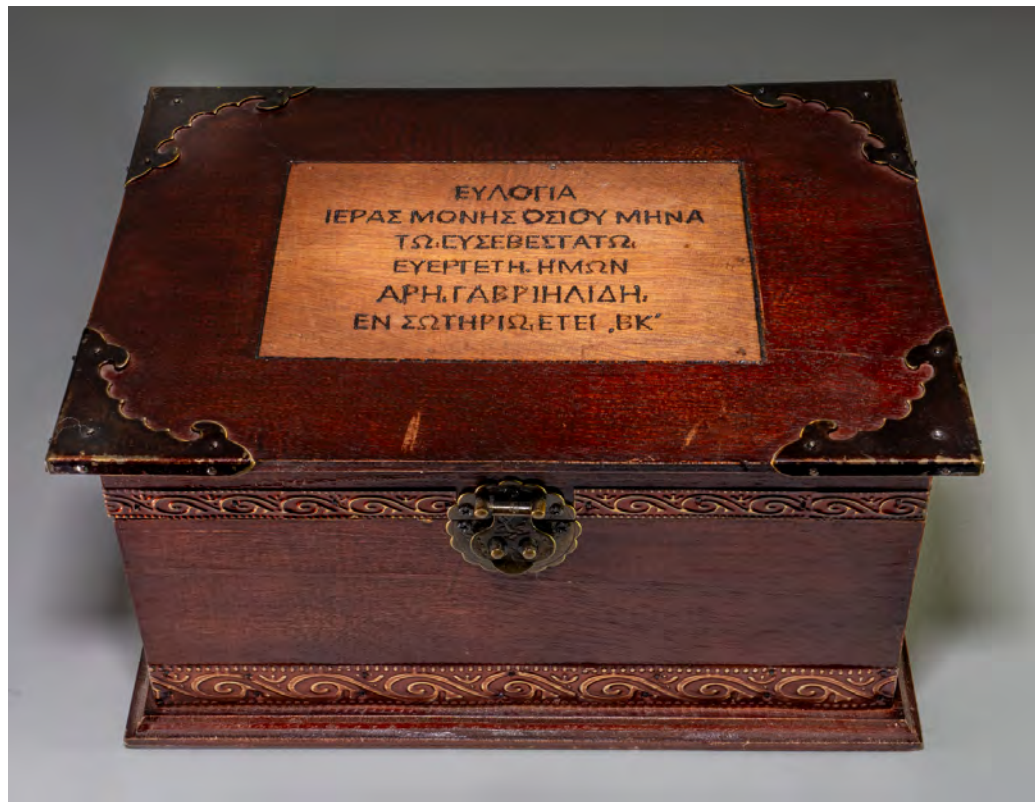 ΕΥΛΟΓΙΑ
ΙΕΡΑΣ ΜΟΝΗΣ ΟΣΙΟΥ ΜΗΝΑ
ΤΩ, ΕΥΣΕΒΕΣΤΑΤΩ,
ΕΥΕΡΓΕΤΗ, ΗΜΩΝ
ΑΡΗ, ΓΑΒΡΙΗΛΙΔΗ,
ΕΝ ΣΩΤΗΡΙΩ, ΕΤΕΙ ͵ΒΚʹ